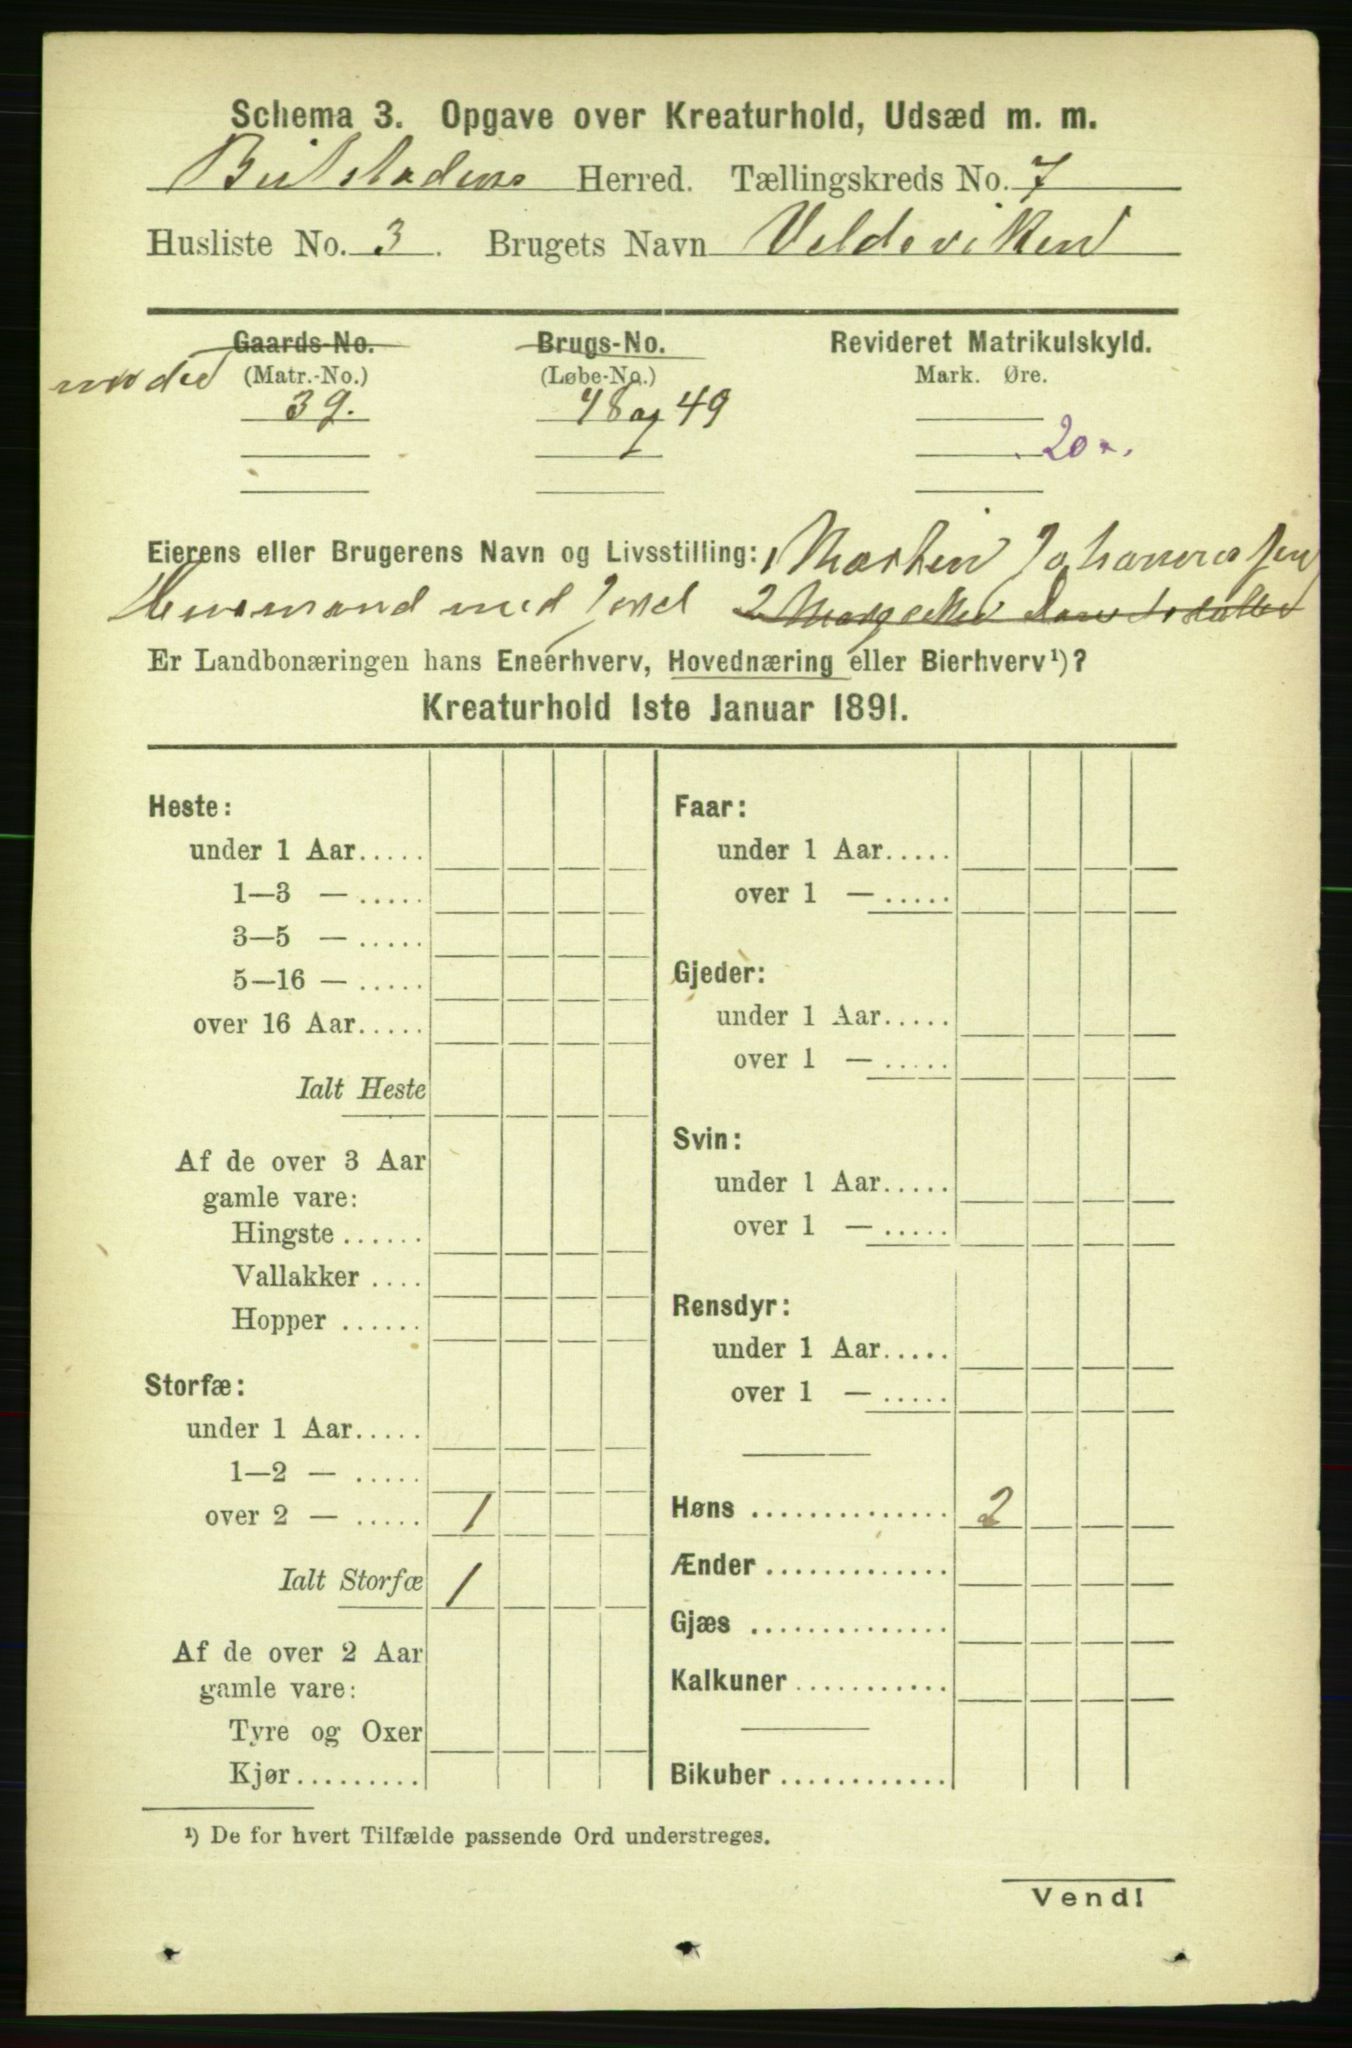 Schema 3. Opgave over Kreaturhold, Udsæd m. m.
Beitstadens Herred. Tællingskreds No. 7
Husliste No. 3. Brugets Navn Veldeviken
Gaards-No. Brugs-No. Revideret Matrikulskyld.
(Matr.-No.) (Løbe-No.) Mark. Øre.
39. 48 og 49
20
Eierens eller Brugerens Navn og Livsstilling: Martin Johannessen
Husmand med Jord 2
Er Landbonæringen hans Eneerhverv, Hovednæring eller Bierhverv¹)?
Kreaturhold 1ste Januar 1891.
Heste:
under 1 Aar.....
1—3 — .....
3—5 — .....
5—16 — .....
over 16 Aar.....
Ialt Heste
Af de over 3 Aar
gamle vare:
Hingste ......
Vallakker ....
Hopper ......
Storfæ:
under 1 Aar.....
1—2 — .....
over 2 — ..... 1
Ialt Storfæ 1
Af de over 2 Aar
gamle vare:
Tyre og Oxer
Kjør.........
Faar:
under 1 Aar.....
over 1 — .....
Gjeder:
under 1 Aar.....
over 1 — .....
Svin:
under 1 Aar.....
over 1 — .....
Rensdyr:
under 1 Aar.....
over 1 — .....
Høns .............. 2
Ænder .............
Gjæs ..............
Kalkuner ...........
Bikuber ............
¹) De for hvert Tilfælde passende Ord understreges.
Vend!